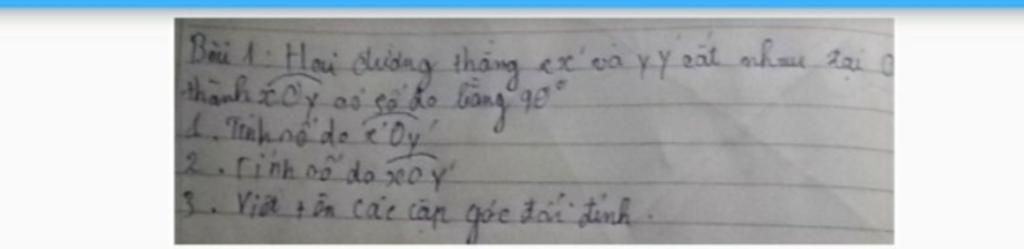 Bài 1: Hai đường thẳng xx' và yy' cắt nhau tại O
thành xOy có số đo bằng 90°
1. Tính số đo x'Oy'
2. Tính số đo xOy'
3. Viết tên các cặp góc đối đỉnh.